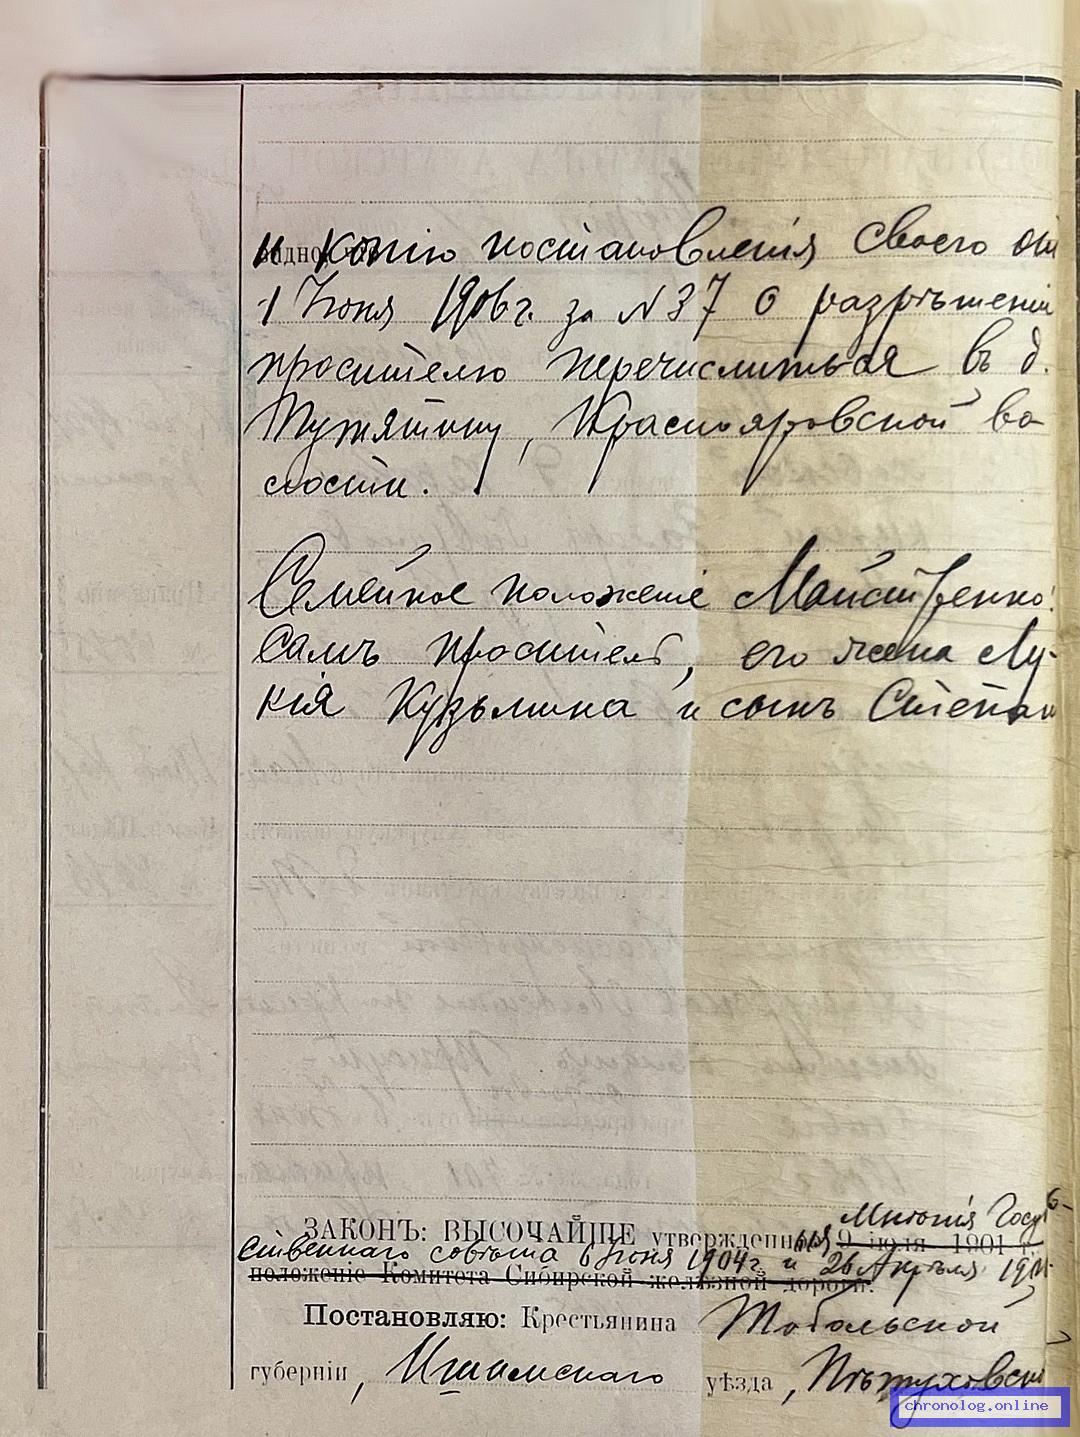 и копію постановленія своего от
1 Іюня 1906 г. за № 37 о разрѣшеніи
просителю перечислиться въ д.
Тужяткину, Краснояровской во
лости.
Семейное положеніе Майстренко:
Самъ проситель, его жена Лу-
кія Кузьмина и сынъ Степан
ЗАКОНЪ: ВЫСОЧАЙШЕ утвержденныя 9 іюля 1901 г. Мнѣнія Госуд-
ственнаго совѣта 6 Іюня 1904 г. и 26 Апрѣля 19
положеніе Комитета Сибирской желѣзной дороги.
Постановляю: Крестьянина Тобольской
губерніи, Ишимскаго уѣзда, Пѣтуховско
chronolog.online